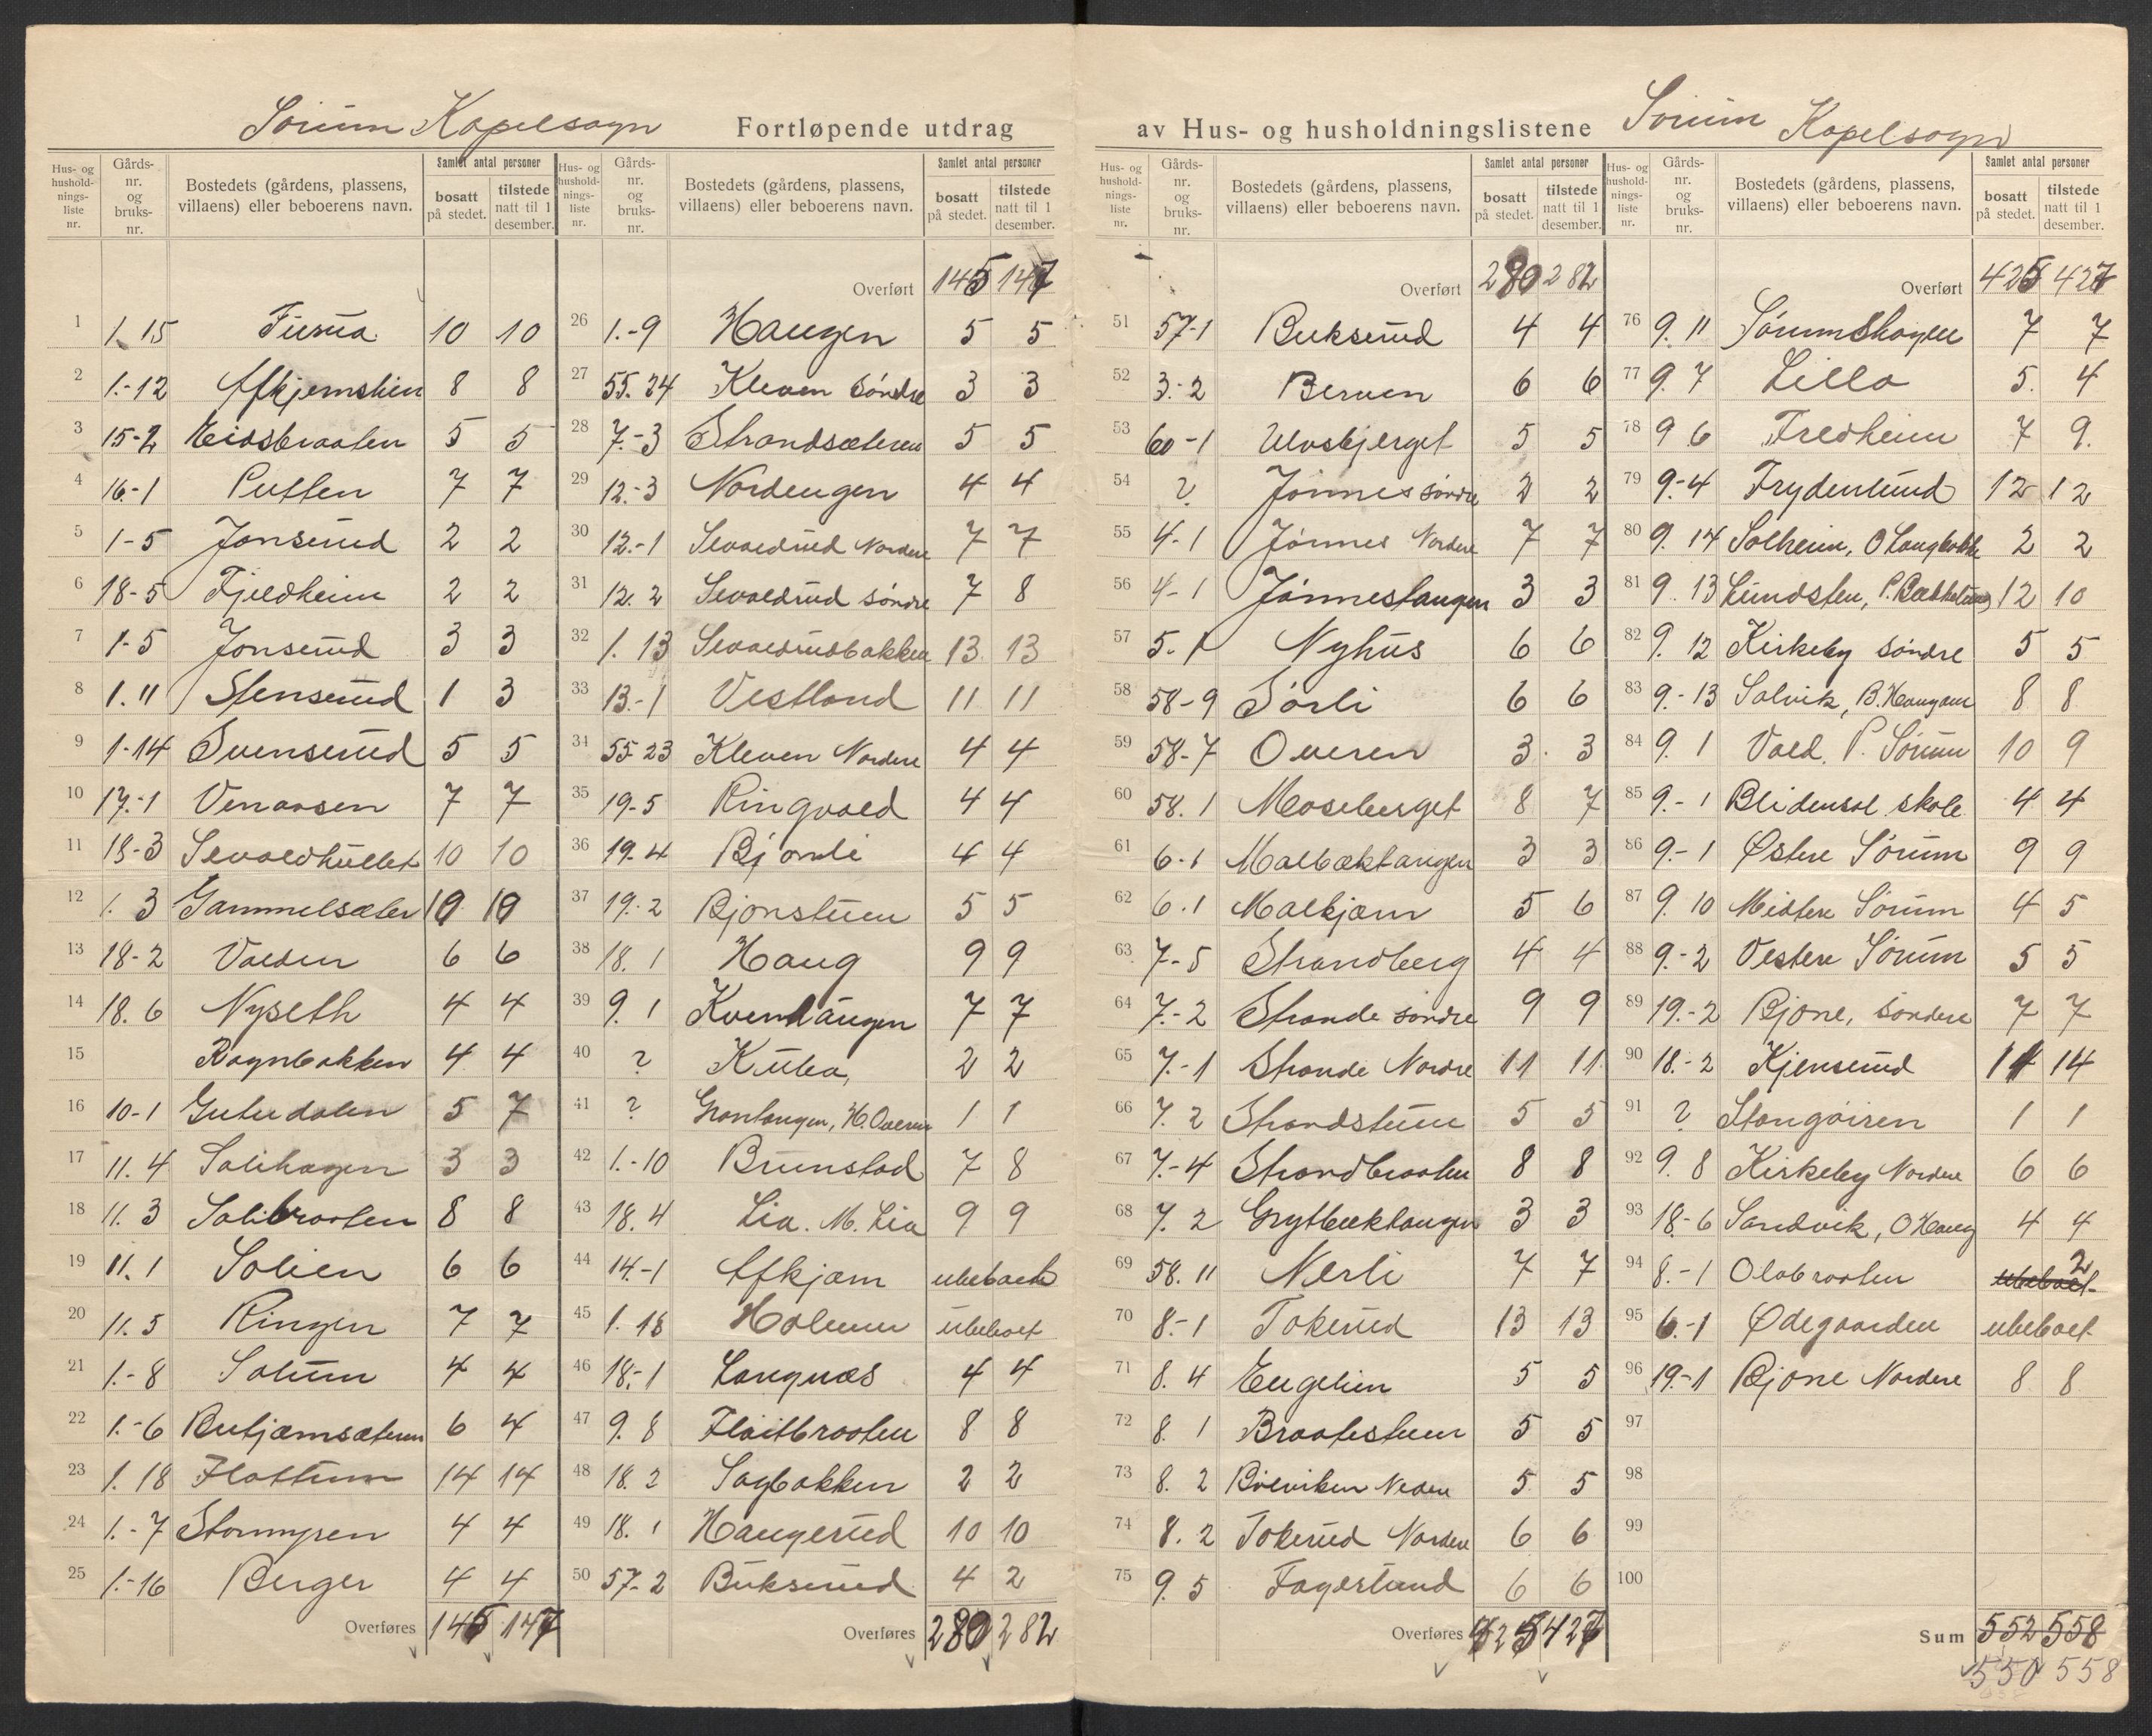 Sørum Kapelsogn Fortløpende utdrag av Hus- og husholdningslistene Sørum Kapelsogn
Hus- og husholdnings-liste nr. Gårds-nr. og bruks-nr. Bostedets (gårdens, plassens, villaens) eller beboerens navn. Samlet antal personer bosatt på stedet. tilstede natt til 1 desember.
1 1. 15 Furua 10 10
2 1.-12 Afkjernslien 8 8
3 15-2 Eidsbraaten 5 5
4 16-1 Putten 7 7
5 1-5 Jonserud 2 2
6 18-5 Fjeldheim 2 2
7 1-5 Jonserud 3 3
8 1.11 Stenserud 1 3
9 1-14 Svenserud 5 5
10 17.-1 Venaasen 7 7
11 18-3 Sevaldhullet 10 10
12 1. 3 Gammelsæter 10 10
13 18-2 Volden 6 6
14 18. 6 Nyseth 4 4
15 Rognbakken 4 4
16 10-1 Guterdalen 5 7
17 11. 4 Solihagen 3 3
18 11. 3 Solibraaten 8 8
19 11. 1 Solien 6 6
20 11. 5 Ringen 7 7
21 1.-8 Solum 4 4
22 1.-6 Butjernsæteren 6 4
23 1. 18 Flattum 14 14
24 1.-7 Stormyren 4 4
25 1.-16 Berger 4 4
Overføres 145 147
Hus- og husholdnings-liste nr. Gårds-nr. og bruks-nr. Bostedets (gårdens, plassens, villaens) eller beboerens navn. Samlet antal personer bosatt på stedet. tilstede natt til 1 desember.
Overført 145 147
26 1.-9 Haugen 5 5
27 55. 24 Kleven Søndre 3 3
28 7.-3 Strandsæteren 5 5
29 12.-3 Nordengen 4 4
30 12.-1 Sevaldrud Nordre 7 7
31 12. 2 Sevaldrud søndre 7 8
32 1. 13 Sevaldrudbakken 13 13
33 13.-1 Vestland 11 11
34 55 23 Kleven Nordre 4 4
35 19-5 Ringvold 4 4
36 19. 4 Bjonli 4 4
37 19. 2 Bjonstuen 5 5
38 18. 1 Haug 9 9
39 9. 1 Kventangen 7 7
40 ? Kuba, 2 2
41 ? Grontangen, H. Overen 1 1
42 1.-10 Brunstad 7 8
43 18. 4 Lia. M. Lia 9 9
44 14.-1 Afkjern ubeboet
45 1. 18 Holmen ubeboet
46 18.-1 Langnæs 4 4
47 9. 8 Fløitbraaten 8 8
48 18. 2 Sagbakken 2 2
49 18. 1 Haugerud 10 10
50 57.- 2 Bukserud 4 2
Overføres 280 282
Hus- og husholdnings-liste nr. Gårds-nr. og bruks-nr. Bostedets (gårdens, plassens, villaens) eller beboerens navn. Samlet antal personer bosatt på stedet. tilstede natt til 1 desember.
Overført 280 282
51 57-1 Bukserud 4 4
52 3.- 2 Berven 6 6
53 60-1 Ulvsbjerget 5 5
54 ? Jønnes søndre 2 2
55 4.-1 Jønnes Nordre 7 7
56 4-1 Jønnestangen 3 3
57 5. 1 Nyhus 6 6
58 58-9 Sørli 6 6
59 58.-7 Overen 3 3
60 58. 1 Moseberget 8 7
61 6.1 Malbæktangen 3 3
62 6.1 Malkjern 5 6
63 7.-5 Strandberg 4 4
64 7.-2 Strande søndre 9 9
65 7.-1 Strande Nordre 11 11
66 7. 2 Strandstuen 5 5
67 7.-4 Strandbraaten 8 8
68 7. 2 Grytbæktangen 3 3
69 58. 11 Nerli 7 7
70 8.-1 Tokerud 13 13
71 8. 4 Engelien 5 5
72 8. 1 Braatestuen 5 5
73 8. 2 Bølviken Nedre 5 5
74 8. 2 Tokerud Nordre 6 6
75 9. 5 Fagerlund 6 6
Overføres 425 427
Hus- og husholdnings-liste nr. Gårds-nr. og bruks-nr. Bostedets (gårdens, plassens, villaens) eller beboerens navn. Samlet antal personer bosatt på stedet. tilstede natt til 1 desember.
Overført 425 427
76 9. 11 Sørumshagen 7 7
77 9. 7 Lillo 5. 4
78 9 6 Fredheim 7 9.
79 9.-4 Frydenlund 12 12
80 9. 14 Solheim, O Langbakk 2 2
81 9. 13 Lundsten, P. Bækkelung 12 10
82 9. 12 Kirkeby søndre 5 5
83 9.-13 Solvik, B. Haugom 8 8
84 9. 1 Vold. P. Sørum 10 9
85 9.-1 Blidensol skole 4 4
86 9.-1 Østre Sørum 9 9
87 9. 10 Midtre Sørum 4 5
88 9.-2 Vestre Sørum 5 5
89 19.-2 Bjone, søndre 7 7
90 18.-2 Kjenserud 14 14
91 ? Stangøiren 1 1
92 9. 8 Kirkeby Nordre 6 6
93 18-6 Sandvik, O Haug 4 4
94 8.-1 Olabraaten ubeboet 2
95 6.-1 Ødegaarden ubeboet
96 19.-1 Bjone Nordre 8 8
97
98
99
100
Sum 552 558
550 558